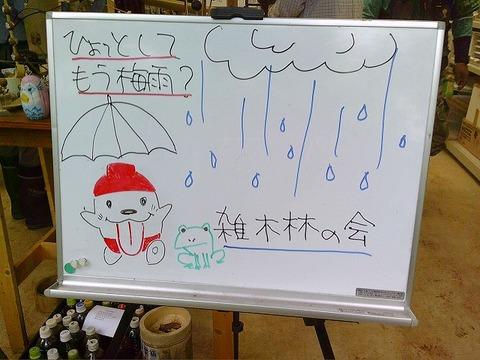 ひょっとして
もう梅雨?
雑木林の会